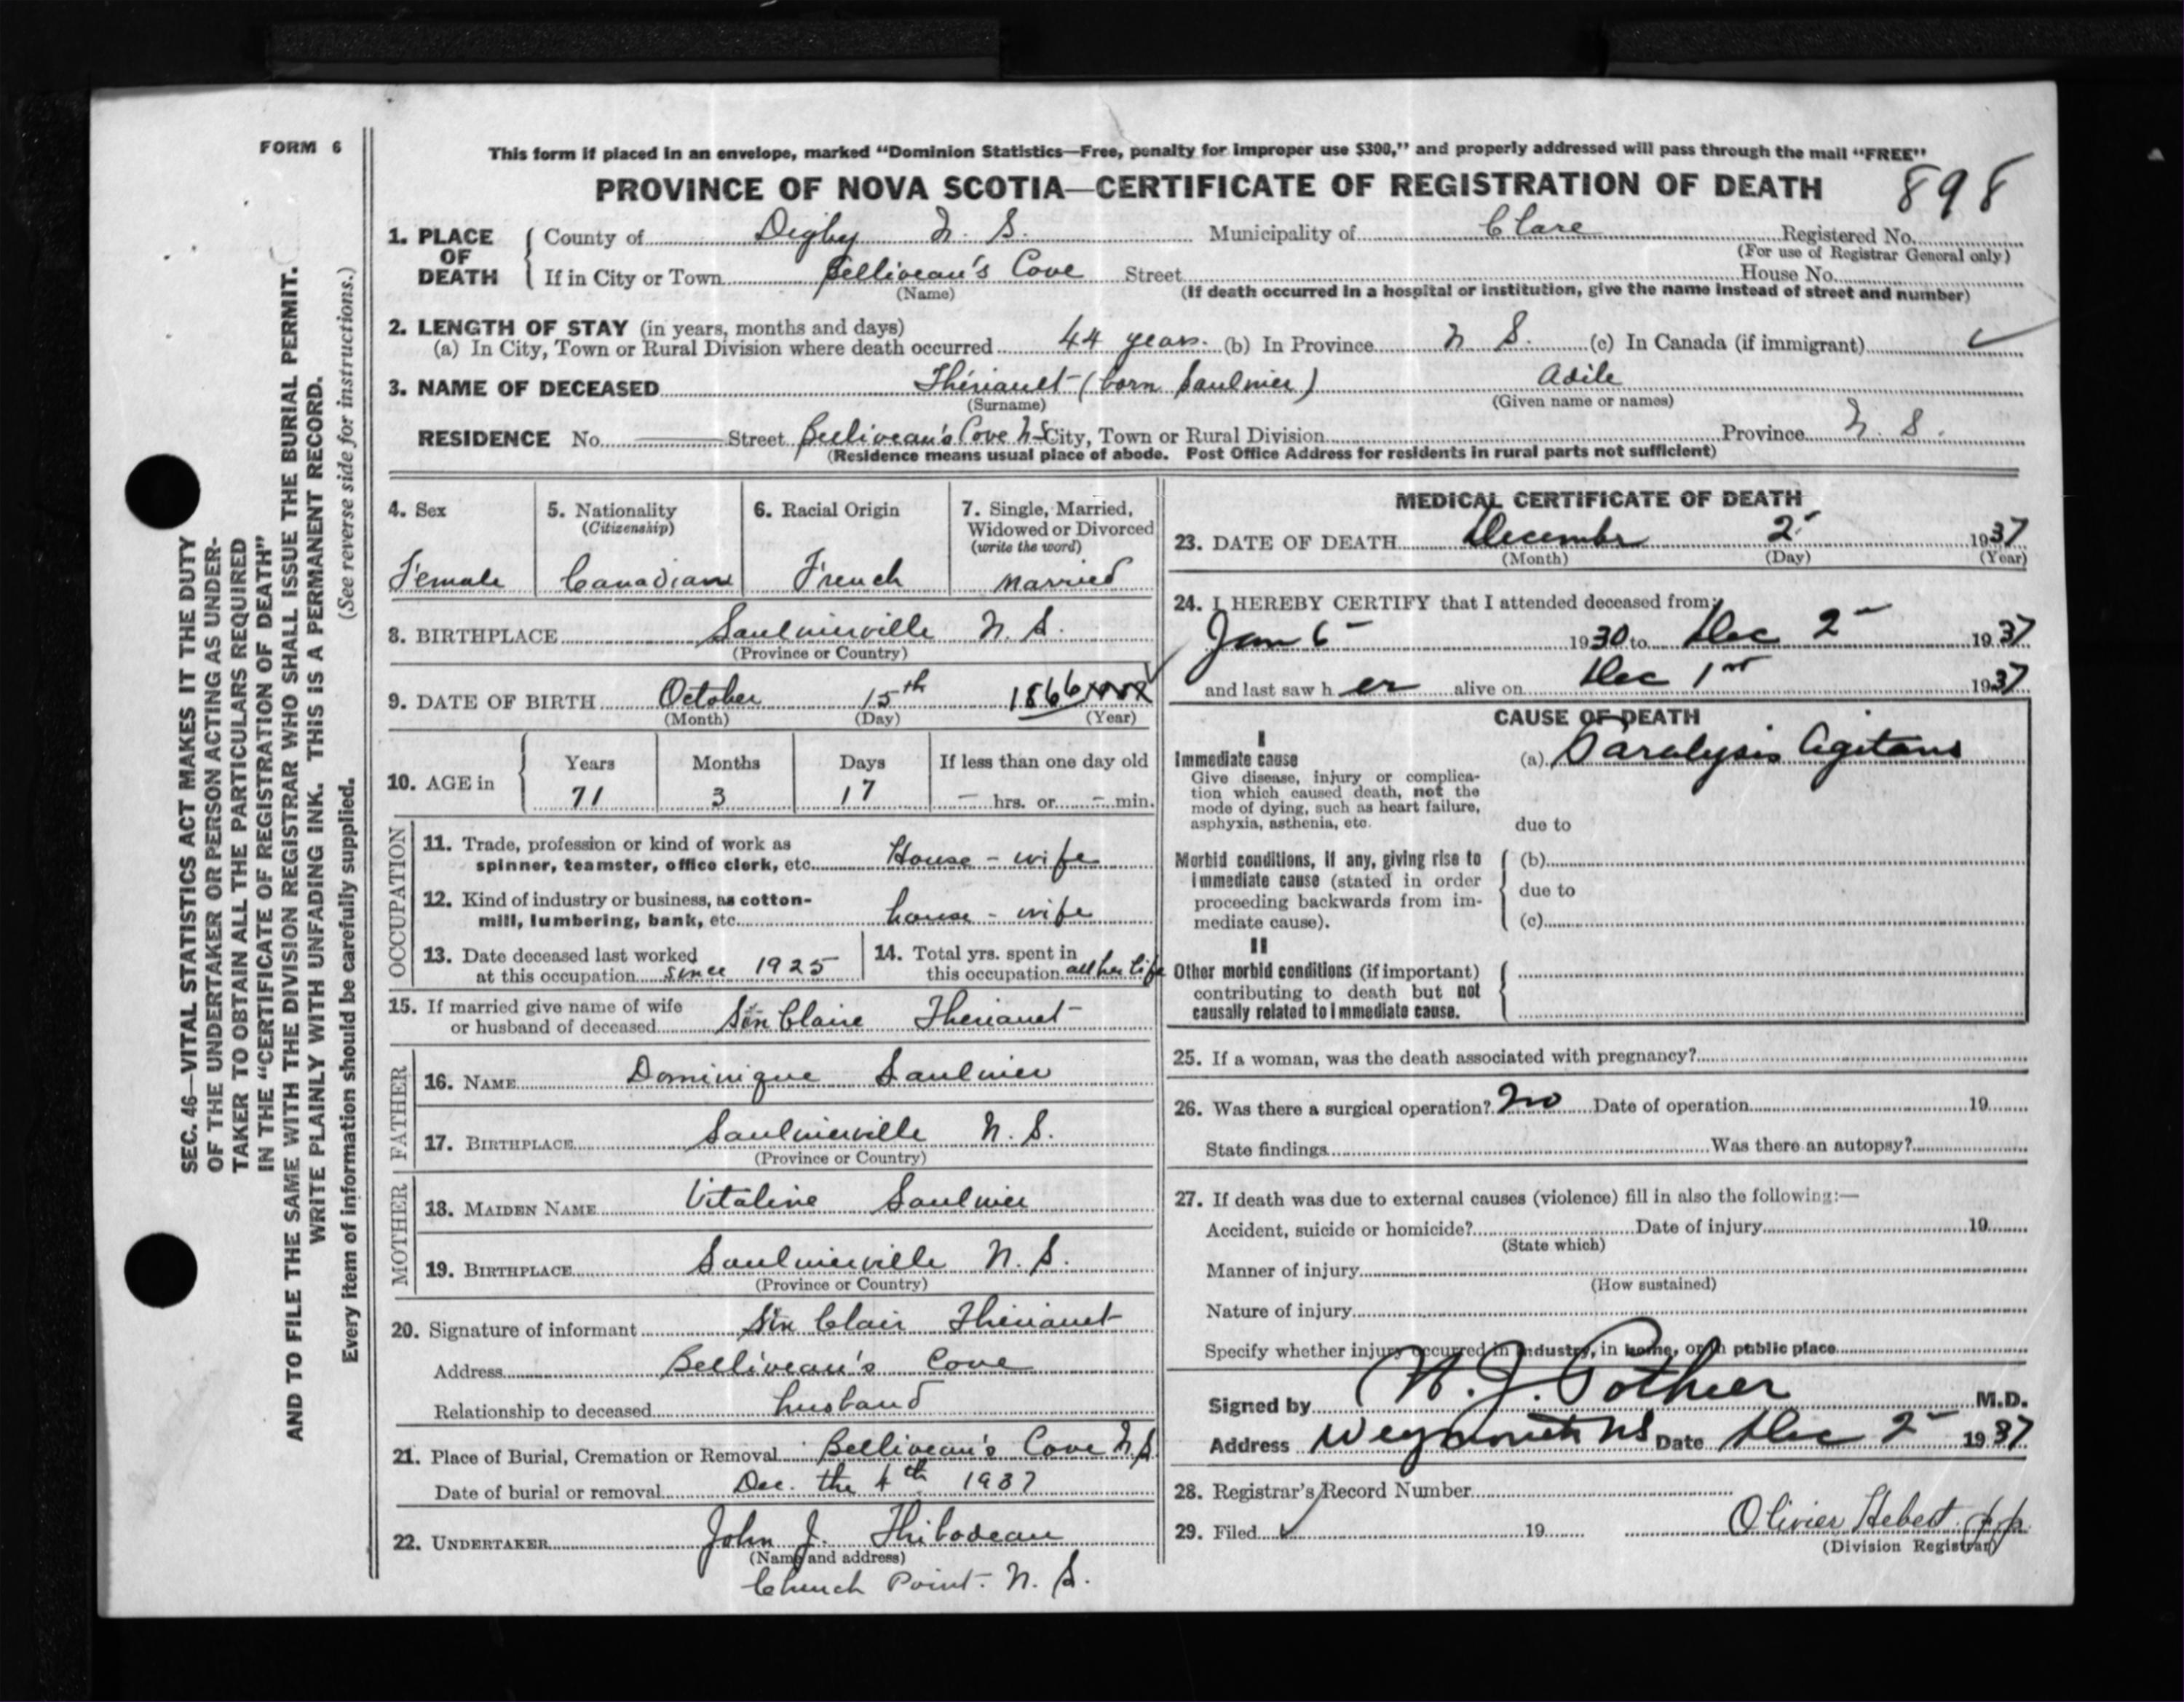 FORM 6
This form if placed in an envelope, marked “Dominion Statistics—Free, penalty for improper use $300,” and properly addressed will pass through the mail “FREE”
PROVINCE OF NOVA SCOTIA—CERTIFICATE OF REGISTRATION OF DEATH
898
1. PLACE OF DEATH
County of Digby N. S. Municipality of Clare Registered No.
(For use of Registrar General only)
If in City or Town Belliveau's Cove Street House No.
(Name) (If death occurred in a hospital or institution, give the name instead of street and number)
2. LENGTH OF STAY (in years, months and days)
(a) In City, Town or Rural Division where death occurred 44 years. (b) In Province N S. (c) In Canada (if immigrant)
3. NAME OF DECEASED Thériault (born Saulnier) Adile
(Surname) (Given name or names)
RESIDENCE No. Street Belliveau's Cove N S City, Town or Rural Division Province N. S.
(Residence means usual place of abode. Post Office Address for residents in rural parts not sufficient)
4. Sex
Female
5. Nationality
(Citizenship)
Canadian
6. Racial Origin
French
7. Single, Married,
Widowed or Divorced
(write the word)
Married
8. BIRTHPLACE Saulnierville N. S.
(Province or Country)
9. DATE OF BIRTH October 15th 1866
(Month) (Day) (Year)
10. AGE in
Years Months Days If less than one day old
71 3 17 — hrs. or — min.
OCCUPATION
11. Trade, profession or kind of work as
spinner, teamster, office clerk, etc. House - wife
12. Kind of industry or business, as cotton-
mill, lumbering, bank, etc. house - wife
13. Date deceased last worked
at this occupation since 1925
14. Total yrs. spent in
this occupation all her life
15. If married give name of wife
or husband of deceased Sin Claire Theriault
FATHER
16. NAME Dominique Saulnier
17. BIRTHPLACE Saulnierville N. S.
(Province or Country)
MOTHER
18. MAIDEN NAME Vitaline Saulnier
19. BIRTHPLACE Saulnierville N. S.
(Province or Country)
20. Signature of informant Sin Clair Theriault
Address Belliveau's Cove
Relationship to deceased husband
21. Place of Burial, Cremation or Removal Belliveau's Cove N.S.
Date of burial or removal Dec. the 4th 1937
22. UNDERTAKER John J. Thibodeau
(Name and address)
Church Point. N. S.
MEDICAL CERTIFICATE OF DEATH
23. DATE OF DEATH December 2 1937
(Month) (Day) (Year)
24. I HEREBY CERTIFY that I attended deceased from:
Jan 6 1930 to Dec 2 1937
and last saw her alive on Dec 1st 1937
CAUSE OF DEATH
I
Immediate cause
Give disease, injury or complica-
tion which caused death, not the
mode of dying, such as heart failure,
asphyxia, asthenia, etc.
(a) Paralysis Agitans
due to
Morbid conditions, if any, giving rise to
immediate cause (stated in order
proceeding backwards from im-
mediate cause).
(b)
due to
(c)
II
Other morbid conditions (if important)
contributing to death but not
causally related to immediate cause.
25. If a woman, was the death associated with pregnancy?
26. Was there a surgical operation? No Date of operation 19
State findings Was there an autopsy?
27. If death was due to external causes (violence) fill in also the following:—
Accident, suicide or homicide? Date of injury 19
(State which)
Manner of injury
(How sustained)
Nature of injury
Specify whether injury occurred in industry, in home, or in public place
Signed by W. J. Pothier M.D.
Address Weymouth NS Date Dec 2 1937
28. Registrar's Record Number
29. Filed 19 Olivier Hebert
(Division Registrar)
SEC. 46—VITAL STATISTICS ACT MAKES IT THE DUTY
OF THE UNDERTAKER OR PERSON ACTING AS UNDER-
TAKER TO OBTAIN ALL THE PARTICULARS REQUIRED
IN THE “CERTIFICATE OF REGISTRATION OF DEATH”
AND TO FILE THE SAME WITH THE DIVISION REGISTRAR WHO SHALL ISSUE THE BURIAL PERMIT.
WRITE PLAINLY WITH UNFADING INK. THIS IS A PERMANENT RECORD.
Every item of information should be carefully supplied. (See reverse side for instructions.)